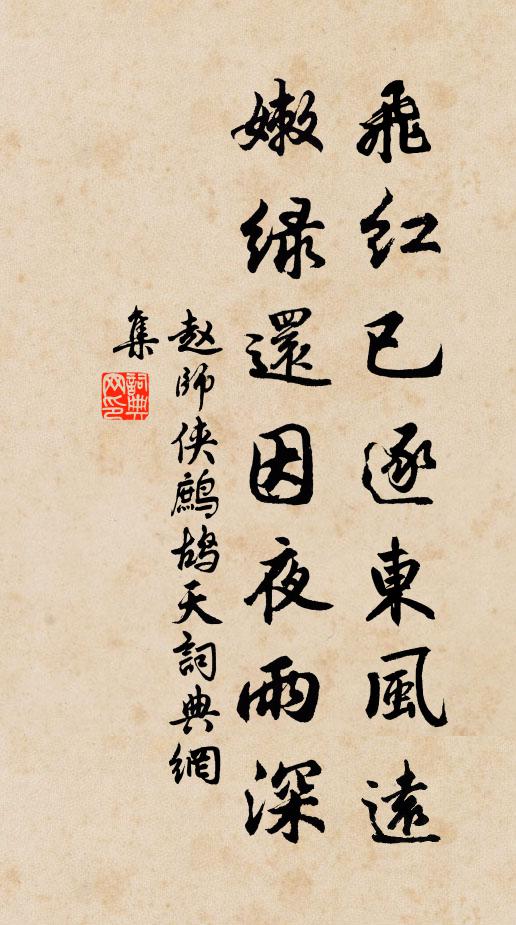 飛紅已逐東風遠
嫩綠還因夜雨深
赵師俠鷓鴣天詞典網
集
詞典
网印